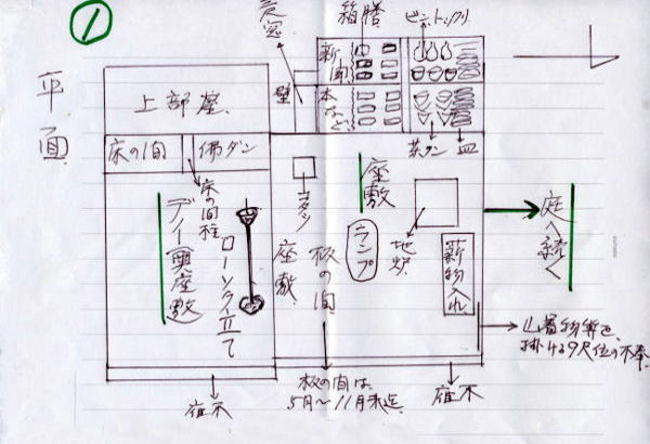 ①
平面
上部座
床の間
佛ダン
床の間柱
デイ奥座敷
ローソク立て
天窓
壁
箱膳
新聞
本など
ビン、トックリ
茶ワン
皿
コタツ
座敷
板の間
座敷
ランプ
地炉
薪物入れ
庭へ続く
山着物等を
掛ける9尺位の木
板の間は
5月〜11月末迄
雇木
雇木